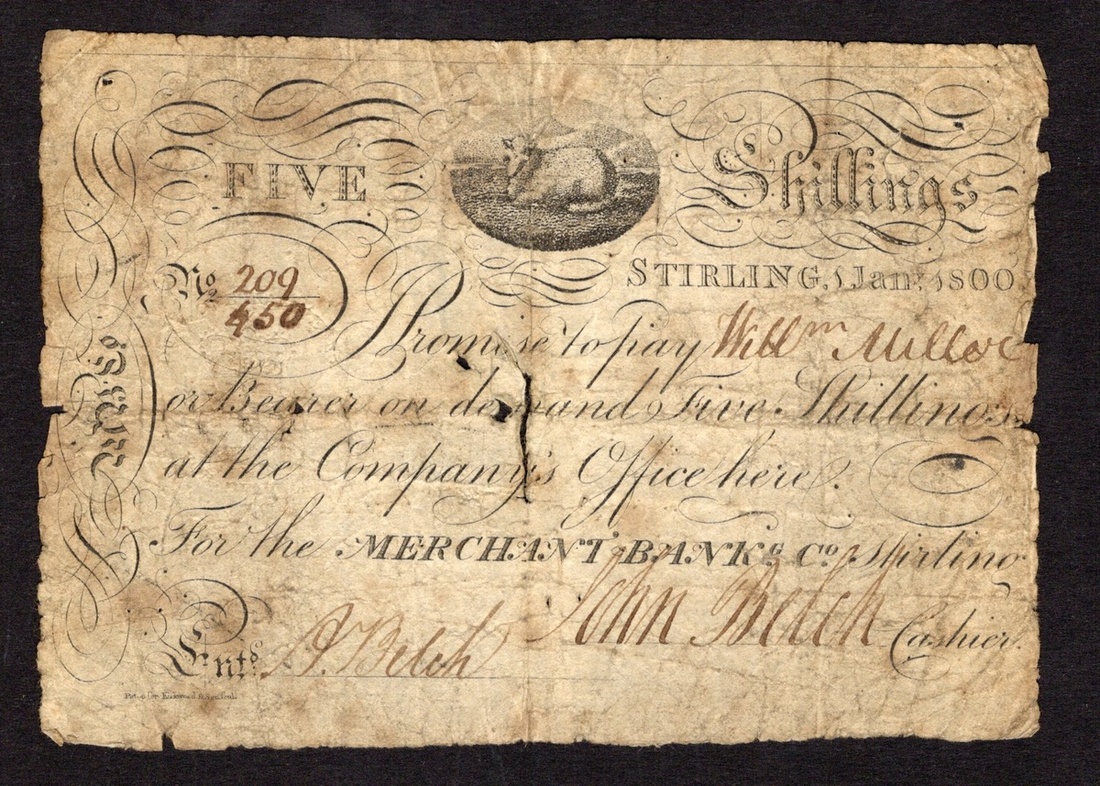 FIVE Shillings
STIRLING, 1 Jan.y 1800
No. 209
450
I Promise to pay Willm Millar
or Bearer on demand Five Shillings
at the Company's Office here.
For the MERCHANT BANKg. Co. Stirling
John Belch Cashier.
Entd. A. Belch